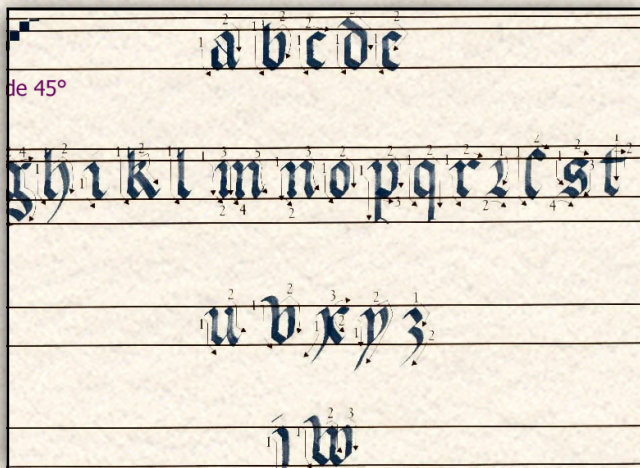 a b c d e
de 45°
g h i k l m n o p q r ꝛ ſ s t
u v x y z
j w